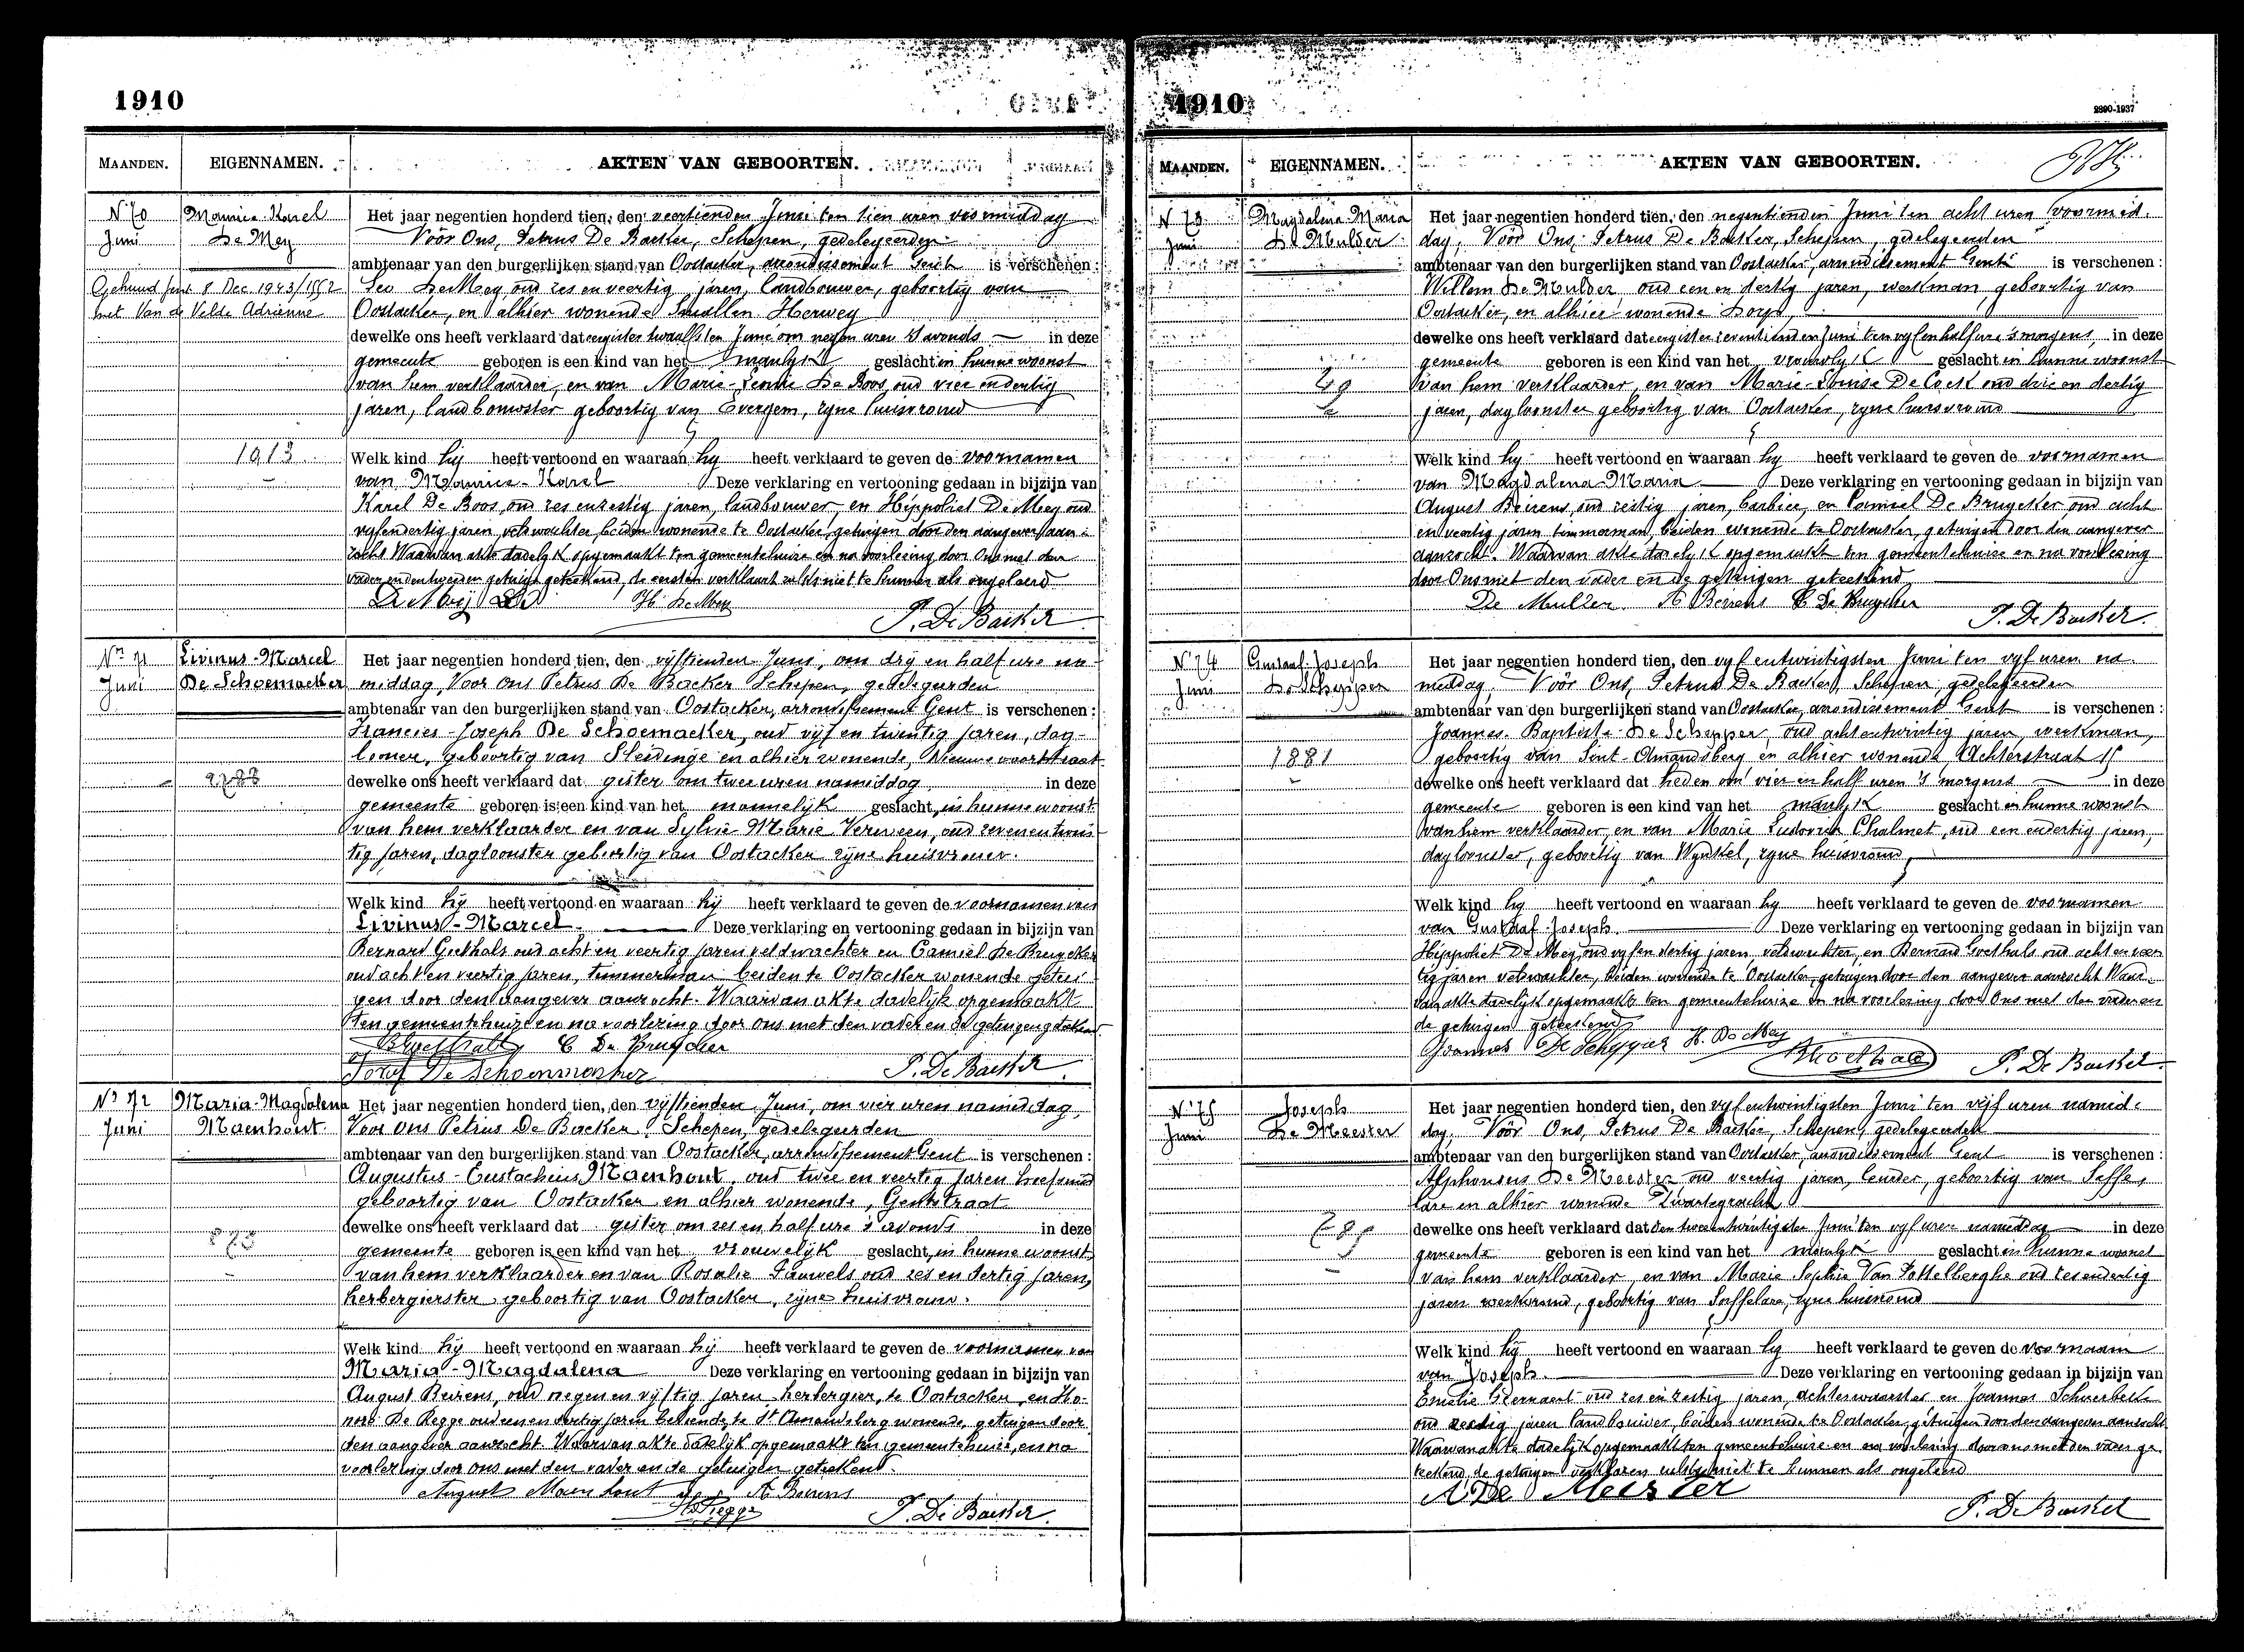 1910
MAANDEN.
EIGENNAMEN.
AKTEN VAN GEBOORTEN.
N 70
Juni
Maurice-Karel
De Mey
Gehuwd Gent 8 Dec 1943/1552
met Van de Velde Adrienne
1913
Het jaar negentien honderd tien, den veertienden Juni ten tien uren voormiddag
Vóór Ons, Petrus De Backer, Schepen, gedelegeerden
ambtenaar van den burgerlijken stand van Oostacker, arrondissement Gent is verschenen:
Leo De Mey oud zes en veertig jaren, landbouwer, geboortig van
Oostacker, en alhier wonende Herweg
dewelke ons heeft verklaard dat eergister twaalfsten Juni om negen uren 's avonds in deze
gemeente geboren is een kind van het manlyk geslacht in hunne woonst
van hem verklaarder, en van Marie De Boos, oud vier en dertig
jaren, landbouwster geboortig van Evergem, zyne huisvrouw
Welk kind hy heeft vertoond en waaraan hy heeft verklaard te geven de voornamen
van Maurice-Karel Deze verklaring en vertooning gedaan in bijzijn van
Karel De Boos, oud zes en zestig jaren, landbouwer, en Hippoliet De Mey oud
vyfendertig jaren, veldwachter, beiden wonende te Oostacker, getuigen door den aangever aan-
zocht Waarvan akte dadelyk opgemaakt ten gemeentehuize en na voorlezing door Ons met den
vader en den tweeden getuige geteekend, de eersten verklaart zulks niet te kunnen als ongeleerd
De Mey Leo H. De Mey
P. De Backer
Nr 71
Juni
Livinus-Marcel
De Schoemaecker
Het jaar negentien honderd tien, den vijftienden Juni, om drij en half ure na-
middag, Voor ons Petrus De Backer Schepen, gedelegeerden
ambtenaar van den burgerlijken stand van Oostacker, arrondissement Gent is verschenen:
Francies-Joseph De Schoemaecker, oud vijf en twintig jaren, dag-
looner, geboortig van Sleidinge en alhier wonende,
dewelke ons heeft verklaard dat gister om twee uren namiddag in deze
gemeente geboren is een kind van het mannelijk geslacht, in hunne woonst
van hem verklaarder en van Sylvie Marie Verween, oud zeven en twin-
tig jaren, dagloonster geboortig van Oostacker zijne huisvrouw.
Welk kind hij heeft vertoond en waaraan hij heeft verklaard te geven de voornamen van
Livinus-Marcel. Deze verklaring en vertooning gedaan in bijzijn van
Bernard Goethals oud acht en veertig jaren veldwachter en Camiel De Bruycker
oud acht en veertig jaren, timmerman beiden te Oostacker wonende getui-
gen door den aangever aanzocht. Waarvan akte dadelijk opgemaakt
ten gemeentehuize en na voorlezing door ons met den vader en de getuigen geteekend
B. Goethals C De Bruycker
Jozef De Schoenmacker
P. De Backer
No 72
Juni
Maria-Magdalena
Maenhout
Het jaar negentien honderd tien, den vijftienden Juni, om vier uren namiddag,
Voor ons Petrus De Backer Schepen, gedelegeerden
ambtenaar van den burgerlijken stand van Oostacker, arrondissement Gent is verschenen:
Augustus-Eustachius Maenhout, oud twee en veertig jaren hoefsmid
geboortig van Oostacker en alhier wonende, Gentstraat
dewelke ons heeft verklaard dat gister om zes en half ure 's avonds in deze
gemeente geboren is een kind van het vrouwelijk geslacht, in hunne woonst
van hem verklaarder en van Rosalie Pauwels oud zes en dertig jaren,
herbergierster geboortig van Oostacker, zijne huisvrouw.
Welk kind hij heeft vertoond en waaraan hij heeft verklaard te geven de voornamen van
Maria-Magdalena Deze verklaring en vertooning gedaan in bijzijn van
August Beirens, oud negen en vijftig jaren herbergier, te Oostacker, en Ho-
noré De Regge oud een en dertig jaren te St Amandsberg wonende, getuigen door
den aangever aanzocht. Waarvan akte dadelijk opgemaakt ten gemeentehuize, en na
voorlezing door ons met den vader en de getuigen geteekend.
August Maenhout A Beirens
H De Regge
P. De Backer
1910
2890-1937
MAANDEN.
EIGENNAMEN.
AKTEN VAN GEBOORTEN.
N 73
Juni
Magdalena-Maria
De Mulder
Het jaar negentien honderd tien, den negentienden Juni ten acht uren voormid-
dag, Vóór Ons, Petrus De Backer, Schepen, gedelegeerden
ambtenaar van den burgerlijken stand van Oostacker, arrondissement Gent is verschenen:
Willem De Mulder, oud een en dertig jaren, werkman, geboortig van
Oostacker, en alhier wonende Dorp,
dewelke ons heeft verklaard dat eergister zeventienden Juni ten vyf en half ure 's morgens, in deze
gemeente geboren is een kind van het vrouwlyk geslacht in hunne woonst
van hem verklaarder, en van Marie-Louise De Cock oud drie en dertig
jaren, dagloonster geboortig van Oostacker, zyne huisvrouw
Welk kind hy heeft vertoond en waaraan hy heeft verklaard te geven de voornamen
van Magdalena-Maria Deze verklaring en vertooning gedaan in bijzijn van
August Beirens, oud zestig jaren, barbier, en Camiel De Bruycker oud acht
en veertig jaren timmerman, beiden wonende te Oostacker, getuigen door den aangever
aanzocht. Waarvan akte dadelyk opgemaakt ten gemeentehuize en na voorlezing
door Ons met den vader en de getuigen geteekend
De Mulder A Beirens C De Bruycker
P. De Backer.
N 74
Juni
Gustaaf-Joseph
De Schepper
1881
Het jaar negentien honderd tien, den vyf en twintigsten Juni ten vyf uren na-
middag, Vóór Ons, Petrus De Backer, Schepen, gedelegeerden
ambtenaar van den burgerlijken stand van Oostacker, arrondissement Gent is verschenen:
Joannes-Baptiste De Schepper, oud acht en twintig jaren, werkman,
geboortig van Sint-Amandsberg en alhier wonende, Achterstraat
dewelke ons heeft verklaard dat heden om vier en half uren 's morgens in deze
gemeente geboren is een kind van het manlyk geslacht in hunne woonst
van hem verklaarder, en van Marie Ludovica Chalmet, oud een en dertig jaren,
dagloonster, geboortig van Wynkel, zyne huisvrouw,
Welk kind hy heeft vertoond en waaraan hy heeft verklaard te geven de voornamen
van Gustaaf-Joseph. Deze verklaring en vertooning gedaan in bijzijn van
Hippoliet De Mey, oud vyf en dertig jaren veldwachter, en Bernard Goethals oud acht en veer-
tig jaren veldwachter, beiden wonende te Oostacker, getuigen door den aangever aanzocht Waar-
van akte dadelijk opgemaakt ten gemeentehuize en na voorlezing door Ons met den vader en
de getuigen geteekend
Joannes De Schepper H. De Mey
B Goethals P. De Backer.
N 75
Juni
Joseph
De Meester
Het jaar negentien honderd tien, den vyf en twintigsten Juni ten vijf uren namid-
dag, Vóór Ons, Petrus De Backer, Schepen, gedelegeerden
ambtenaar van den burgerlijken stand van Oostacker, arrondissement Gent is verschenen:
Alphonsus De Meester oud veertig jaren, geboortig van Saffe-
lare en alhier wonende Zwartegracht
dewelke ons heeft verklaard dat den twee en twintigsten Juni ten vyf uren namiddag in deze
gemeente geboren is een kind van het manlyk geslacht in hunne woonst
van hem verklaarder, en van Marie Sophie Van Pottelberghe oud zes en dertig
jaren werkvrouw, geboortig van Saffelare, zyne huisvrouw
Welk kind hy heeft vertoond en waaraan hy heeft verklaard te geven de voornaam
van Joseph. Deze verklaring en vertooning gedaan in bijzijn van
Emelie Geernaert oud zes en zestig jaren, achterwaarster en Joannes
oud zestig jaren landbouwer, beiden wonende te Oostacker, getuigen door den aangever aanzocht
Waarvan akte dadelyk opgemaakt ten gemeentehuize en na voorlezing door ons met den vader ge-
teekend, de getuigen verklaren zulks niet te kunnen als ongeleerd
A De Meester
P. De Backer